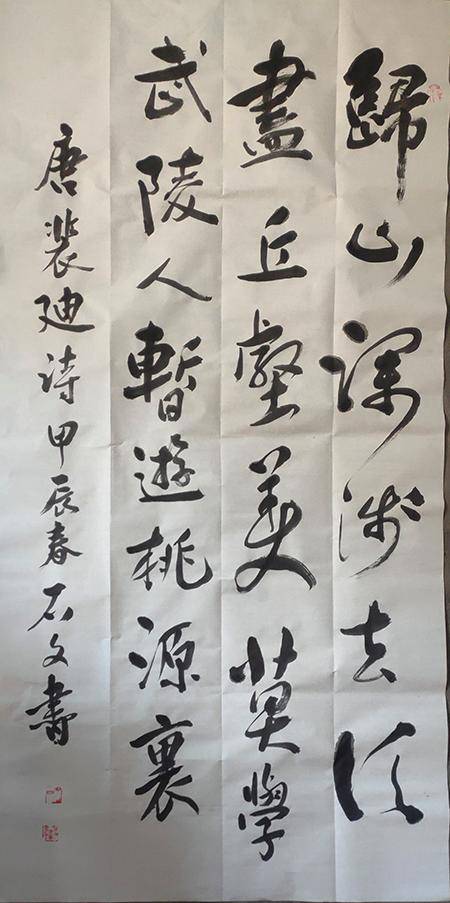 歸山深浅去須
盡丘壑美莫學
武陵人暫遊桃源裏
唐裴迪诗甲辰春石文書